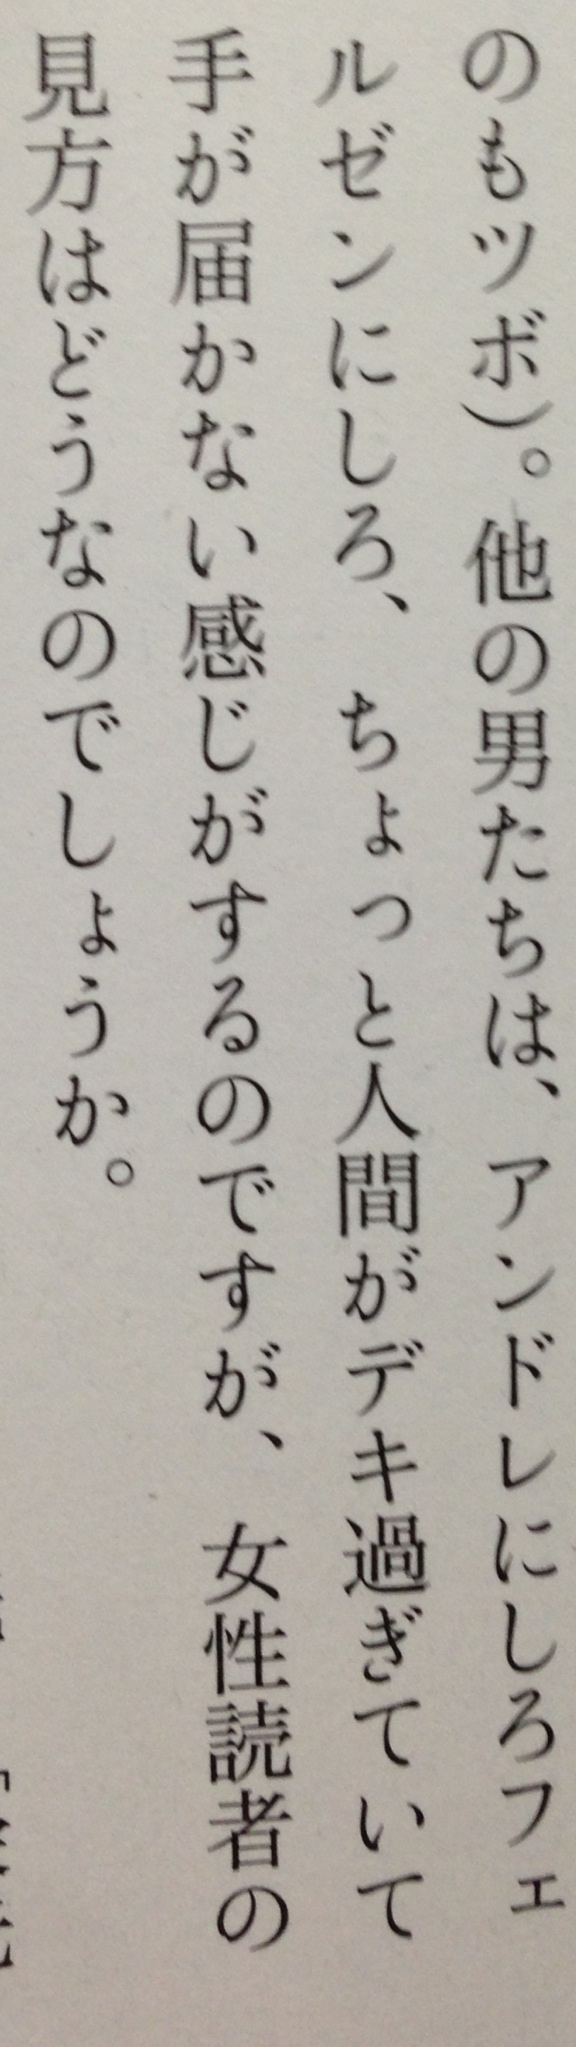 のもツボ)。他の男たちは、アンドレにしろフェ
ルゼンにしろ、ちょっと人間がデキ過ぎていて
手が届かない感じがするのですが、女性読者の
見方はどうなのでしょうか。